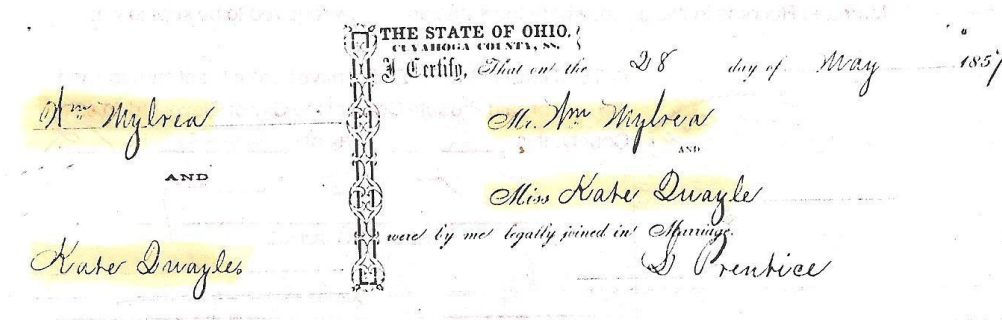 Wm Mylrea
AND
Kate Quayles
THE STATE OF OHIO.
CUYAHOGA COUNTY, SS.
I Certify, That on the 28 day of May 1857
Mr. Wm Mylrea
AND
Miss Kate Quayle
were by me legally joined in Marriage.
Prentice